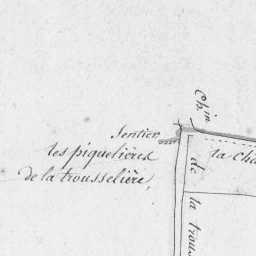 Ch.in
Sentier
les piquelières
de la trousselière,
la cha
de la trous